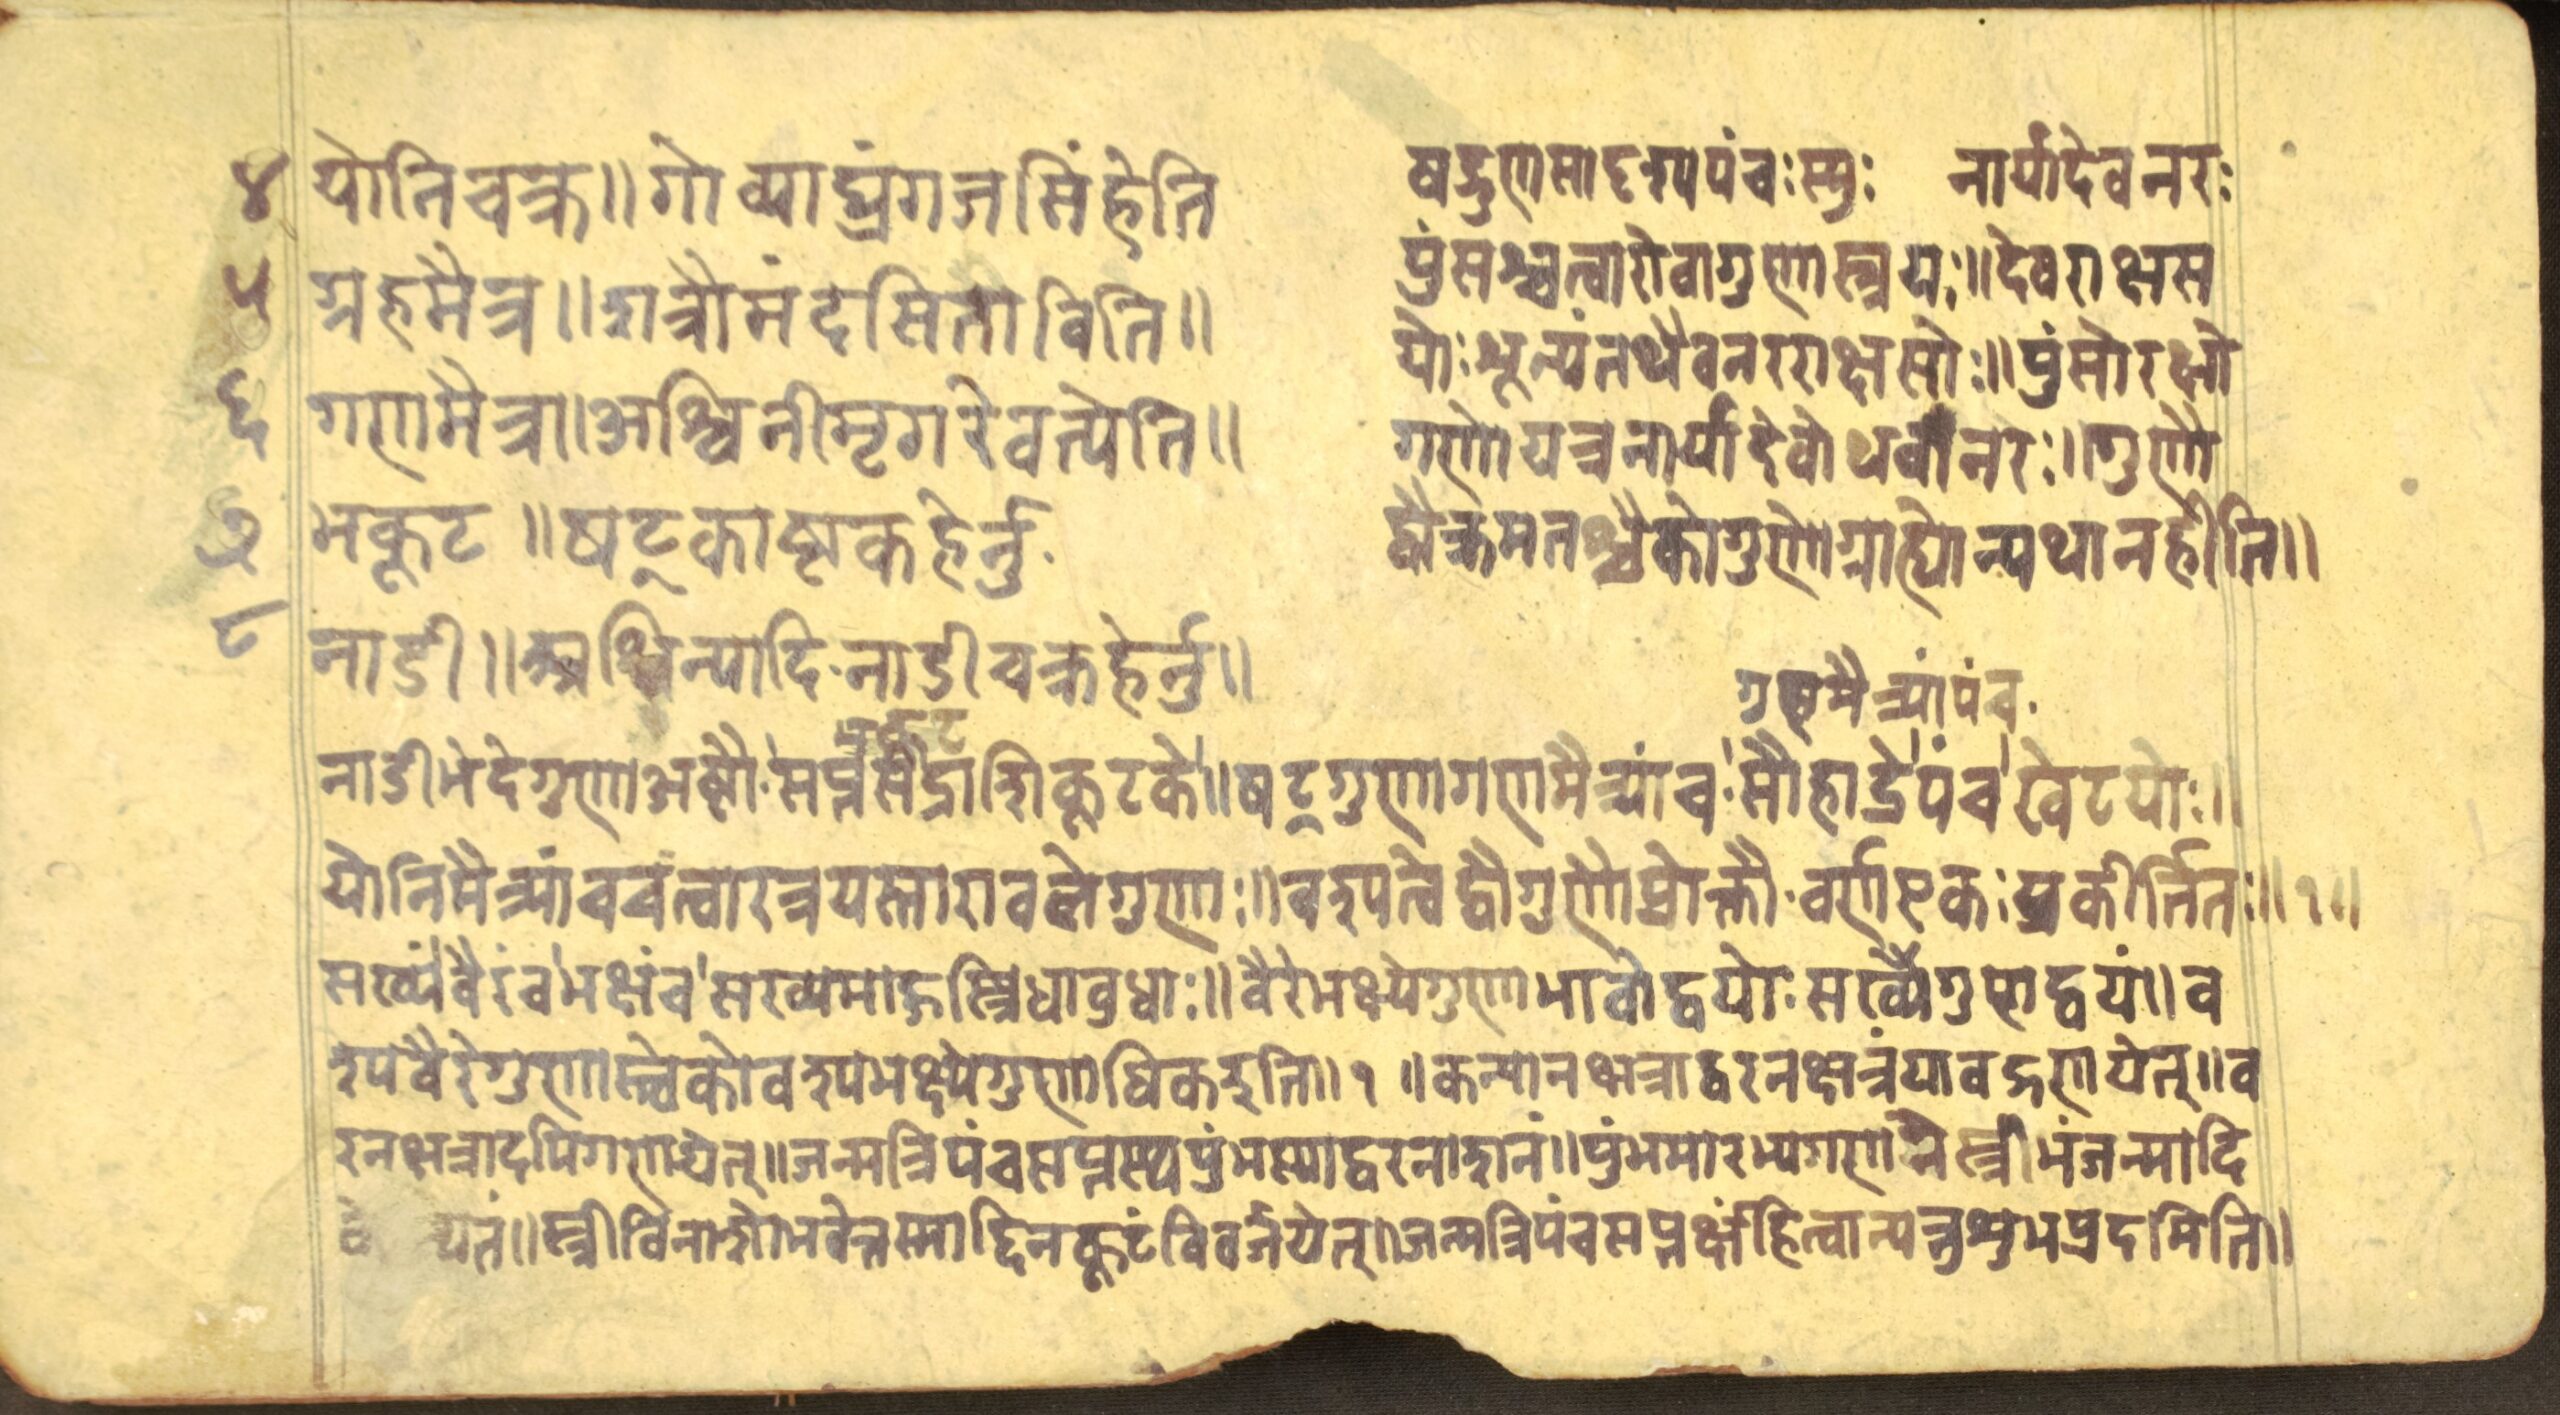 ४ योनिचक्र॥गोव्याघ्रंगजसिंहेति
५ ग्रहमैत्र॥शत्रौमंदसिताविति॥
६ गणमैत्रा॥अश्विनीमृगरेवत्येति॥
७ भकूट ॥षट्काष्टकहेर्नु·
८ नाडी॥अश्विन्यादि·नाडीचक्रहेर्नु॥
षड्गुणासादृश्यपंचःस्युः नार्यादेवनरः
पुंसश्चत्वारोवागुणास्त्रयः॥देवराक्षस
योःशून्यंतथैवनरराक्षसोः॥पुंसोरक्षो
गणोयत्रनार्यादेवोथवानरः॥गुणौ
द्वौक्रमतश्चैकोगुणोग्राह्योन्यथानहीति॥
गणमैत्र्यांपंच·
नाडीभेदेगुणाअष्टौ·सप्तसद्राशिकूटके॥षट्गुणागणमैत्र्यांच·सौहार्द्रेपंचखेटयोः॥
योनिमैत्र्यांचचंत्वारत्रयस्तारावलेगुणाः॥वश्यत्वेद्वौगुणौप्रोक्तौ·वर्णाएकःप्रकीर्त्तितः॥१॥
सख्यंवैरंचभक्षंचसख्यमाहुस्त्रिधावुधाः॥वैरेभक्ष्येगुणाभावोद्वयोःसख्येगुणद्वयं॥व
श्यवैरेगुणास्त्वेकोवश्यभक्ष्येगुणाधिकइति॥१॥कन्यानक्षत्राद्वरनक्षत्रंयावद्गणयेत्॥व
रनक्षत्रादपिगणयेत्॥जन्मत्रिपंचसप्तस्थपुंभस्याद्वरनाशनं॥पुंभमारभ्यगणनेस्त्रीभंजन्मादि
यतं॥स्त्रीविनाशोभवेत्तस्माद्दिनकूटंविवर्जयेत्॥जन्मत्रिपंचसप्तर्क्षंहित्वान्यत्तुशुभप्रदमिति॥